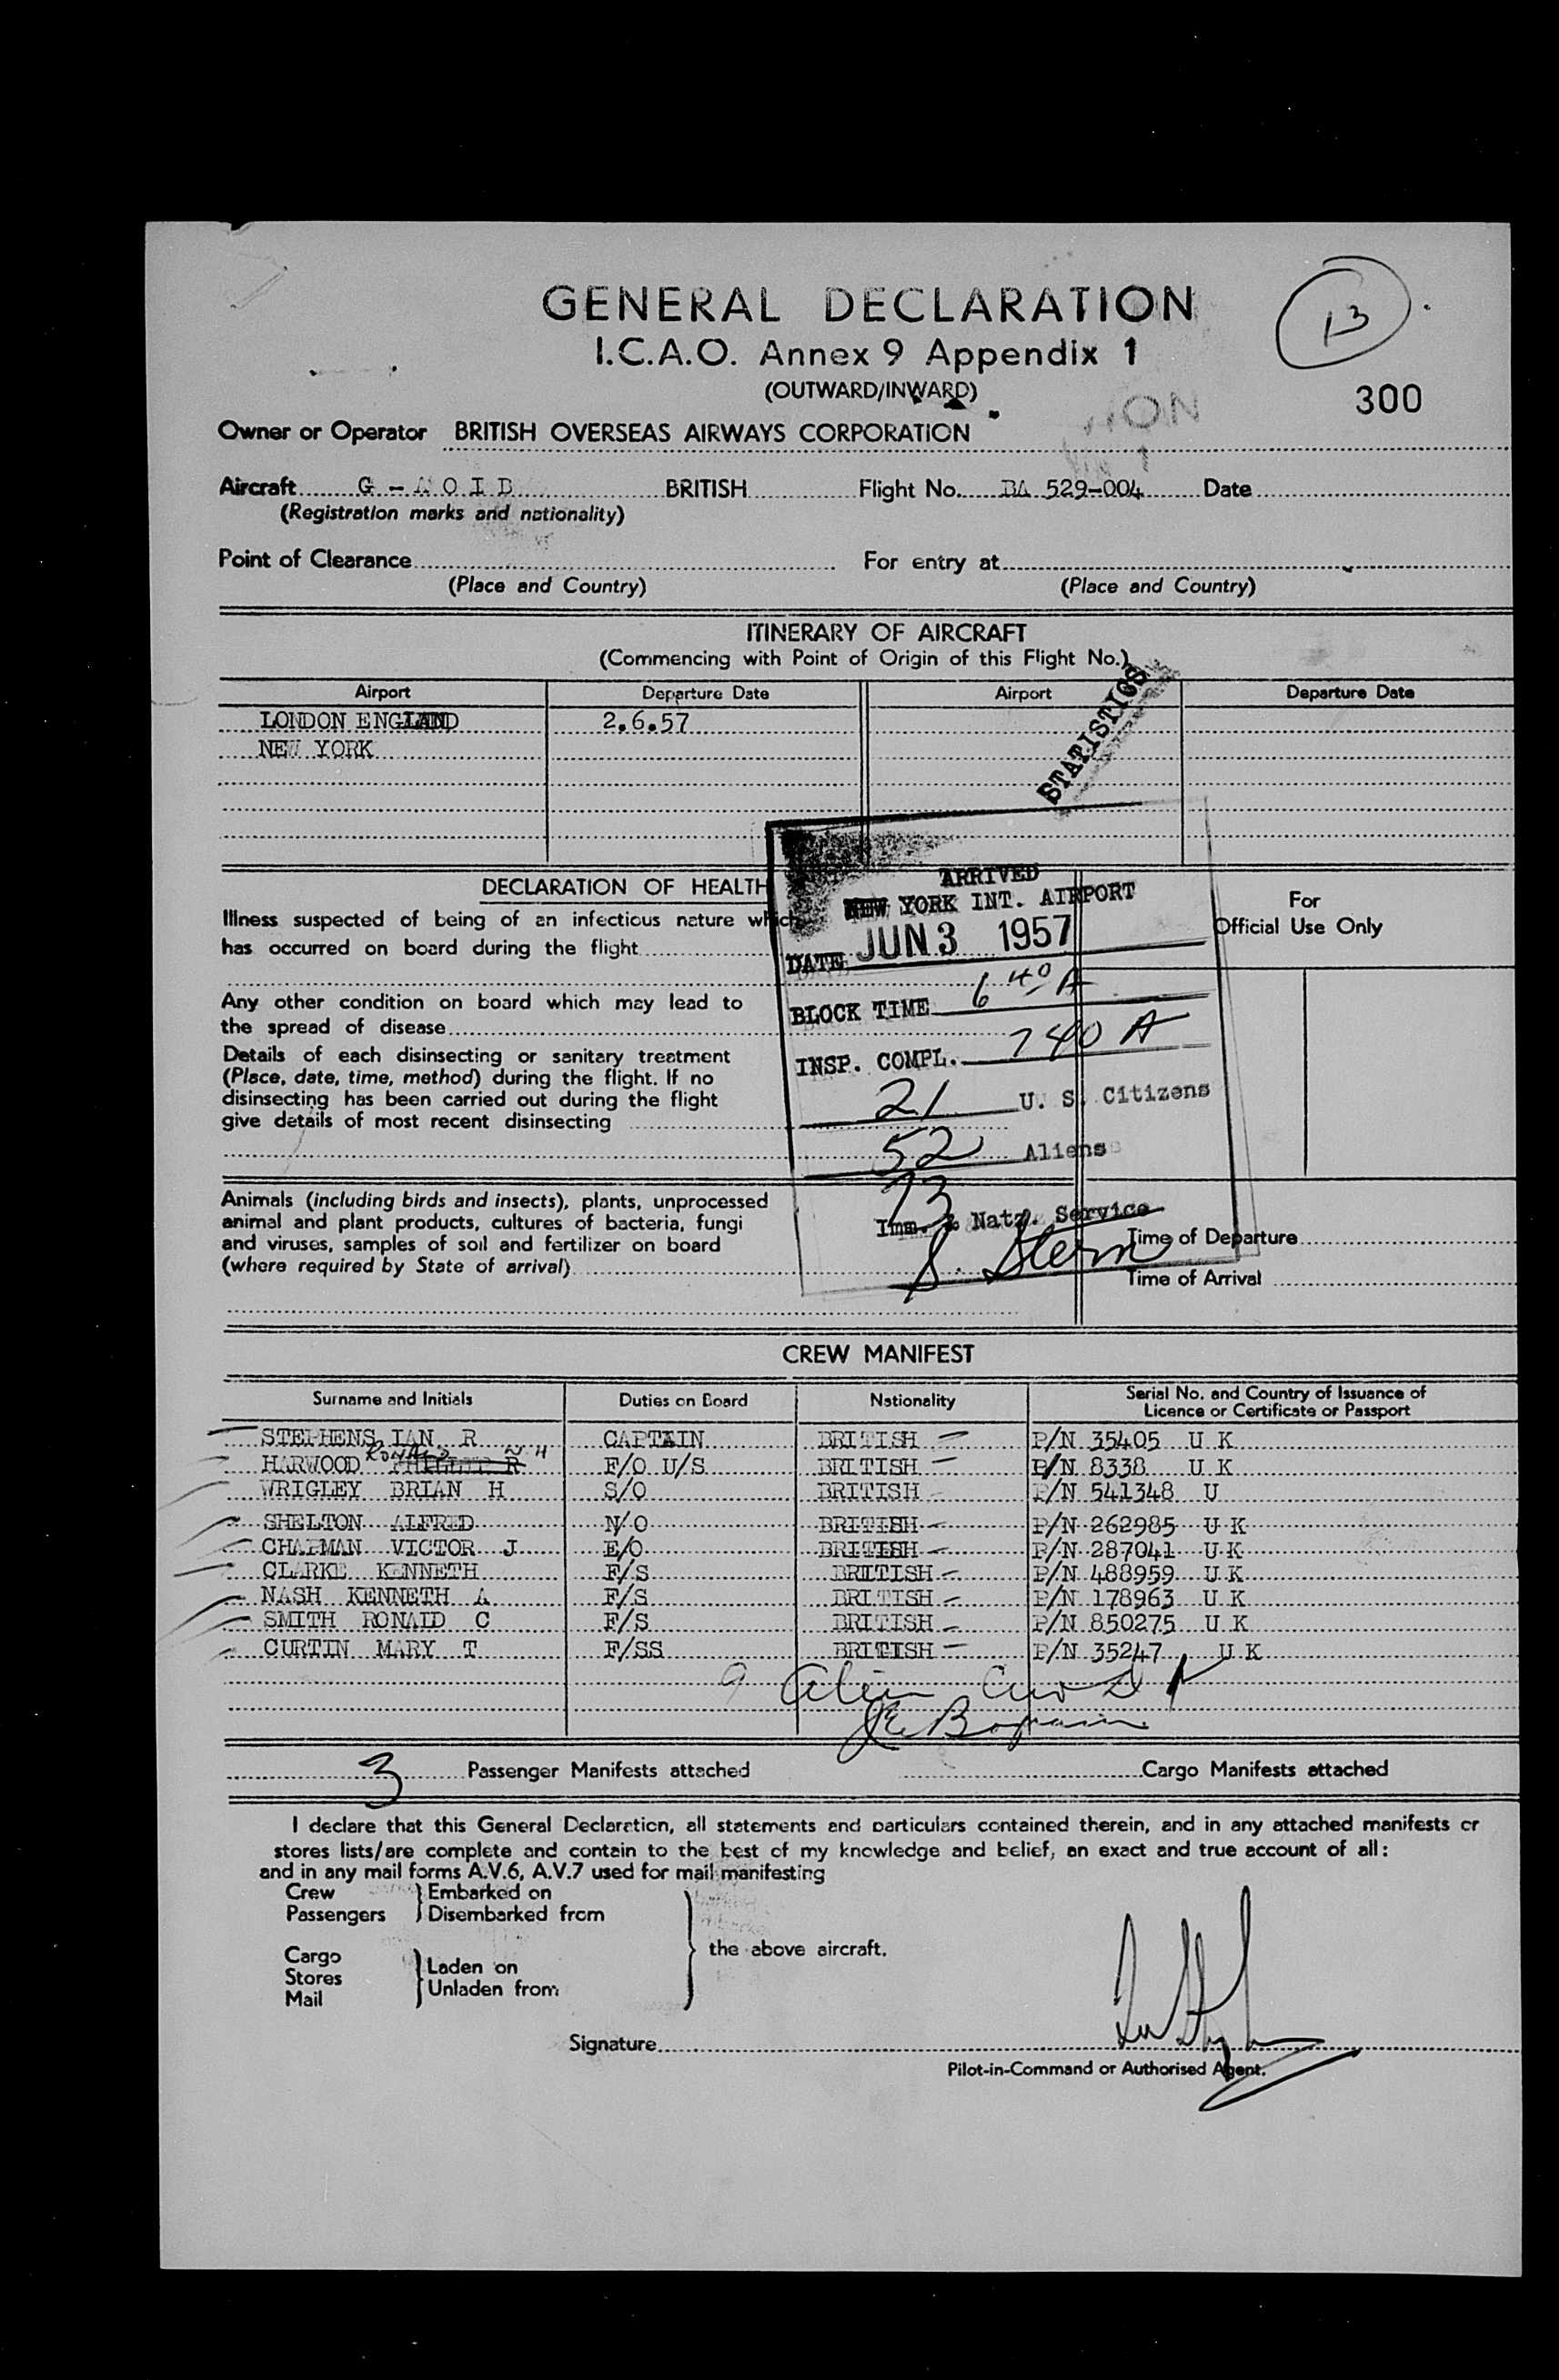 GENERAL DECLARATION
13
I.C.A.O. Annex 9 Appendix 1
(OUTWARD/INWARD)
300
Owner or Operator BRITISH OVERSEAS AIRWAYS CORPORATION
Aircraft G - A O I D BRITISH Flight No. BA 529-004 Date
(Registration marks and nationality)
Point of Clearance For entry at
(Place and Country) (Place and Country)
ITINERARY OF AIRCRAFT
(Commencing with Point of Origin of this Flight No.)
STATISTICS
Airport Departure Date Airport Departure Date
LONDON ENGLAND 2.6.57
NEW YORK
ARRIVED
NEW YORK INT. AIRPORT
DATE JUN 3 1957
BLOCK TIME 6 40 A
INSP. COMPL. 740 A
21 U. S. Citizens
52 Aliens
73
Imm. & Natz. Service
S. Stern
DECLARATION OF HEALTH
Illness suspected of being of an infectious nature which
has occurred on board during the flight
Any other condition on board which may lead to
the spread of disease
Details of each disinsecting or sanitary treatment
(Place, date, time, method) during the flight. If no
disinsecting has been carried out during the flight
give details of most recent disinsecting
For
Official Use Only
Animals (including birds and insects), plants, unprocessed
animal and plant products, cultures of bacteria, fungi
and viruses, samples of soil and fertilizer on board
(where required by State of arrival)
Time of Departure
Time of Arrival
CREW MANIFEST
Surname and Initials Duties on Board Nationality Serial No. and Country of Issuance of
Licence or Certificate or Passport
STEPHENS IAN R CAPTAIN BRITISH P/N 35405 U K
RONALD
HARWOOD PHILLIP R F/O U/S BRITISH P/N 8338 U K
WRIGLEY BRIAN H S/O BRITISH P/N 541348 U
SHELTON ALFRED N/O BRITISH P/N 262985 U K
CHAPMAN VICTOR J E/O BRITISH P/N 287041 U K
CLARKE KENNETH F/S BRITISH P/N 488959 U K
NASH KENNETH A F/S BRITISH P/N 178963 U K
SMITH RONALD C F/S BRITISH P/N 850275 U K
CURTIN MARY T F/SS BRITISH P/N 35247 U K
9 Alien
3 Passenger Manifests attached Cargo Manifests attached
I declare that this General Declaration, all statements and particulars contained therein, and in any attached manifests or
stores lists/are complete and contain to the best of my knowledge and belief, an exact and true account of all:
and in any mail forms A.V.6, A.V.7 used for mail manifesting
Crew Embarked on
Passengers Disembarked from
the above aircraft.
Cargo
Stores Laden on
Mail Unladen from
Signature
Pilot-in-Command or Authorised Agent.